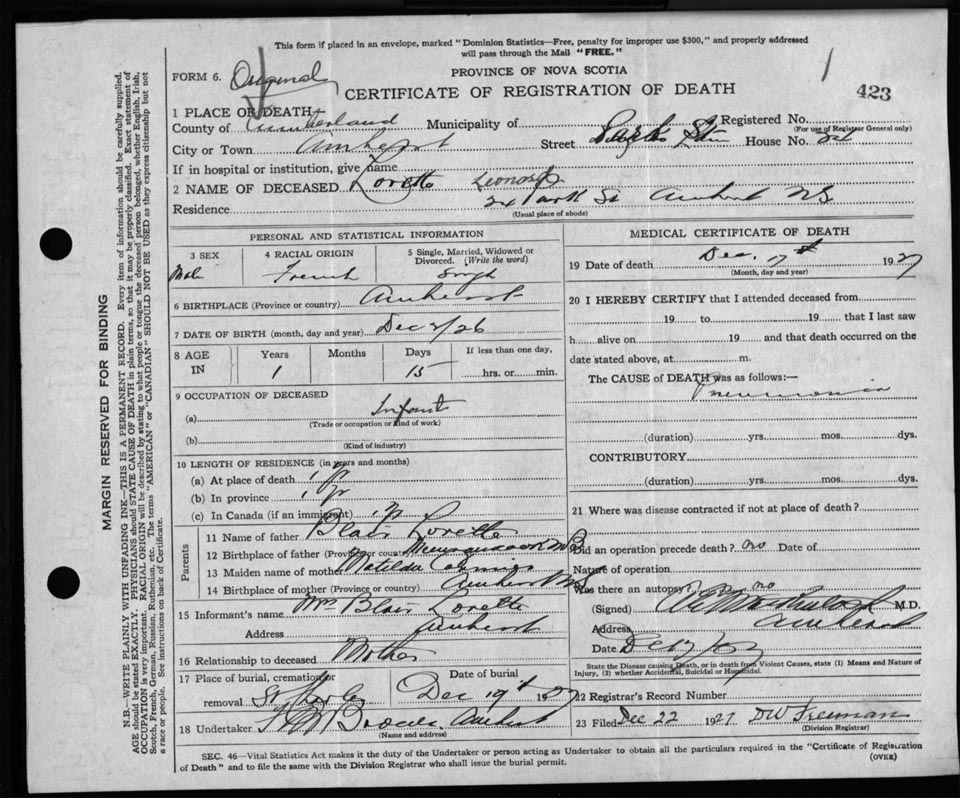 This form if placed in an envelope, marked "Dominion Statistics—Free, penalty for improper use $300," and properly addressed
will pass through the Mail "FREE."
FORM 6. Original
PROVINCE OF NOVA SCOTIA
CERTIFICATE OF REGISTRATION OF DEATH
423
1 PLACE OF DEATH
County of Cumberland Municipality of Registered No.
(For use of Registrar General only)
City or Town Amherst Street House No.
If in hospital or institution, give name
2 NAME OF DECEASED Lorette
Residence Park St Amherst N.S.
(Usual place of abode)
PERSONAL AND STATISTICAL INFORMATION
3 SEX 4 RACIAL ORIGIN 5 Single, Married, Widowed or
Divorced. (Write the word)
French
6 BIRTHPLACE (Province or country) Amherst
7 DATE OF BIRTH (month, day and year) Dec 2/26
8 AGE IN Years Months Days If less than one day,
1 15 hrs. or min.
9 OCCUPATION OF DECEASED
(a) Infant
(Trade or occupation or kind of work)
(b)
(Kind of industry)
10 LENGTH OF RESIDENCE (in years and months)
(a) At place of death 1 yr
(b) In province 1 yr
(c) In Canada (if an immigrant)
Parents
11 Name of father Blair Lorette
12 Birthplace of father (Province or country) Memramcook N.B
13 Maiden name of mother Matilda
14 Birthplace of mother (Province or country) Amherst N.S
15 Informant's name Mrs Blair Lorette
Address Amherst
16 Relationship to deceased Mother
17 Place of burial, cremation or removal Date of burial
Dec 19th 1927
18 Undertaker Amherst
(Name and address)
MEDICAL CERTIFICATE OF DEATH
19 Date of death Dec. 17th 1927
(Month, day and year)
20 I HEREBY CERTIFY that I attended deceased from
19 to 19 that I last saw
h alive on 19 and that death occurred on the
date stated above, at m.
The CAUSE of DEATH was as follows:—
Pneumonia
(duration) yrs. mos. dys.
CONTRIBUTORY
(duration) yrs. mos. dys.
21 Where was disease contracted if not at place of death?
Did an operation precede death? no Date of
Nature of operation
Was there an autopsy? no
(Signed) M.D.
Address Amherst
Date
State the Disease causing Death, or in death from Violent Causes, state (1) Means and Nature of
Injury, (2) whether Accidental, Suicidal or Homicidal.
22 Registrar's Record Number
23 Filed Dec 22 1927 DW Freeman
(Division Registrar)
SEC. 46—Vital Statistics Act makes it the duty of the Undertaker or person acting as Undertaker to obtain all the particulars required in the "Certificate of Registration
of Death" and to file the same with the Division Registrar who shall issue the burial permit. (OVER)
MARGIN RESERVED FOR BINDING
N.B.—WRITE PLAINLY WITH UNFADING INK—THIS IS A PERMANENT RECORD. Every item of information should be carefully supplied.
AGE should be stated EXACTLY. PHYSICIANS should STATE CAUSE OF DEATH in plain terms, so that it may be properly classified. Exact statement of
OCCUPATION is very important. RACIAL ORIGIN will be described by stating to what people or tongue the deceased person belonged, whether English, Irish,
Scotch, French, German, Russian, Ruthenian, etc. The terms "AMERICAN" or "CANADIAN" SHOULD NOT BE USED as they express citizenship but not
a race or people. See instructions on back of Certificate.